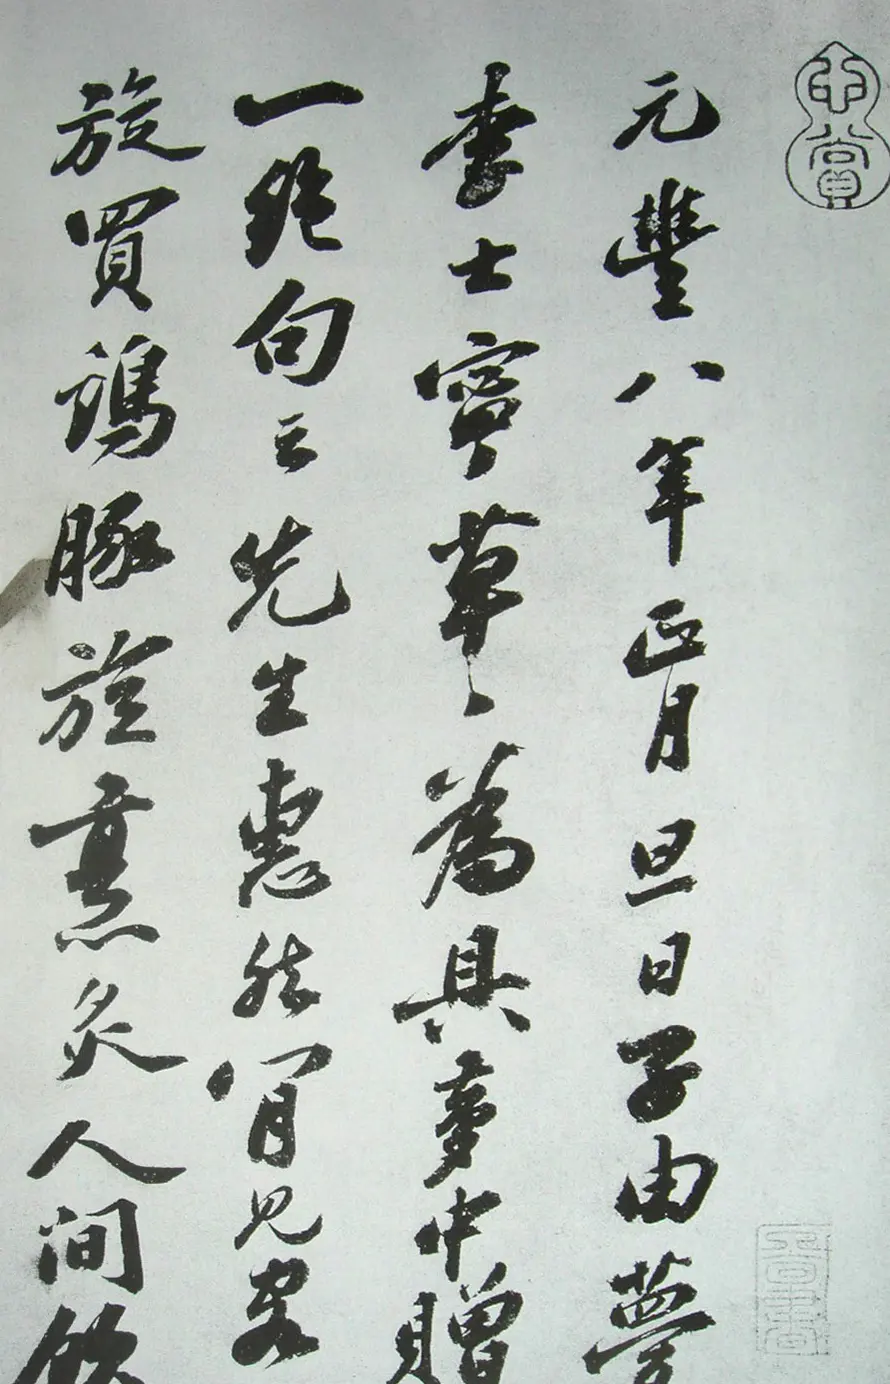 心賞
元豐八年正月旦日子由夢
李士寧草〻為具夢中贈
一絕句云先生惠然肯見客
旋買鷄豚旋烹炙人間飲